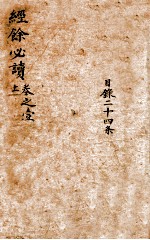 經餘必讀 卷之壹
上
目錄二十四条